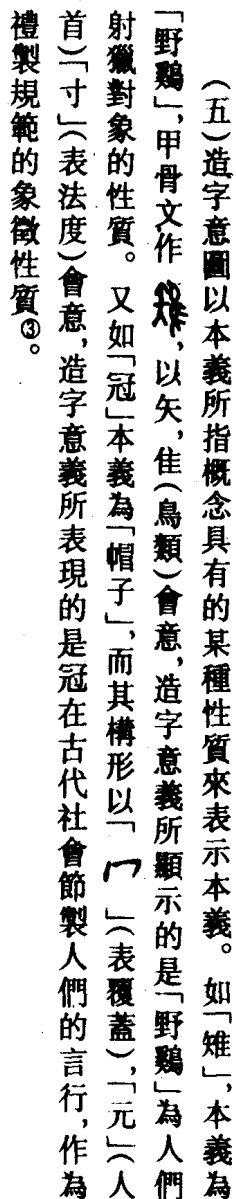 (五)造字意圖以本義所指概念具有的某種性質來表示本義。如「雉」,本義為
「野鷄」,甲骨文作,以矢,隹(鳥類)會意,造字意義所顯示的是「野鷄」為人們
射獵對象的性質。又如「冠」本義為「帽子」,而其構形以「冖」(表覆蓋),「元」(人
首)「寸」(表法度)會意,造字意義所表現的是冠在古代社會節製人們的言行,作為
禮製規範的象徵性質③。